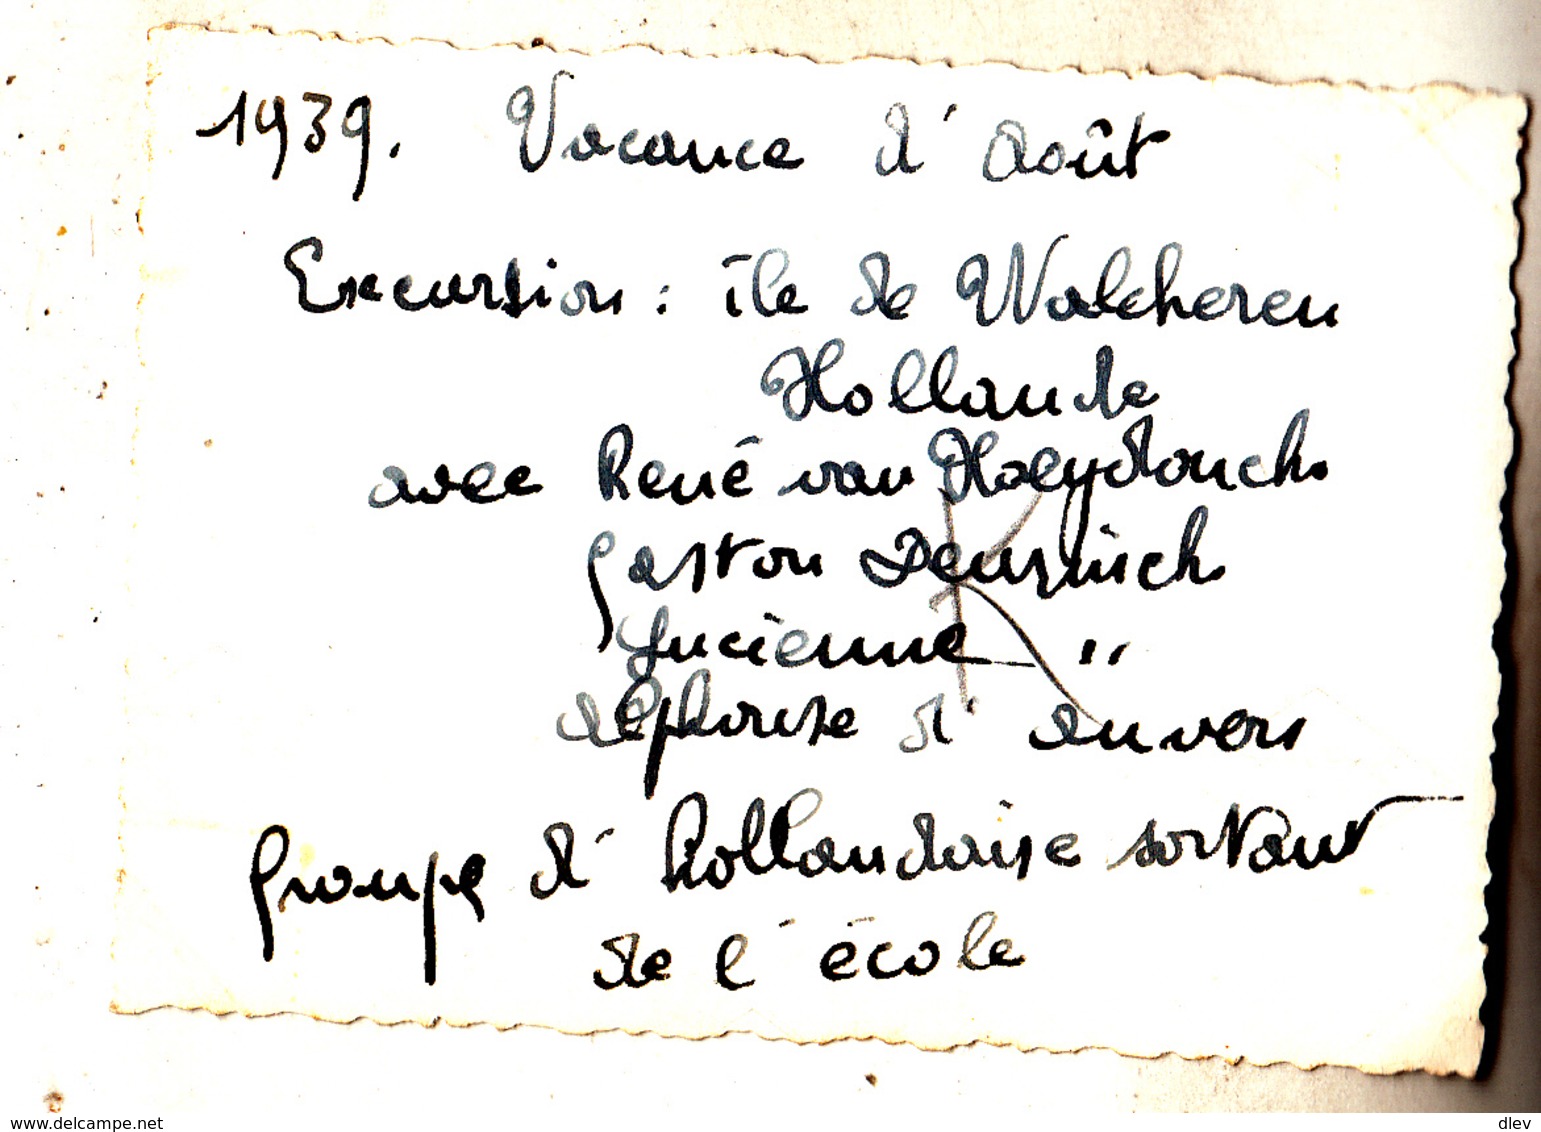 1939. Vacance d'août
Excursion : île de Walcheren
Hollande
avec René van Haeydonck
Gaston Deurninck
Lucienne "
Alphonse d'Anvers
Groupe d'hollandaise sortant
de l'école
www.delcampe.net
dlev